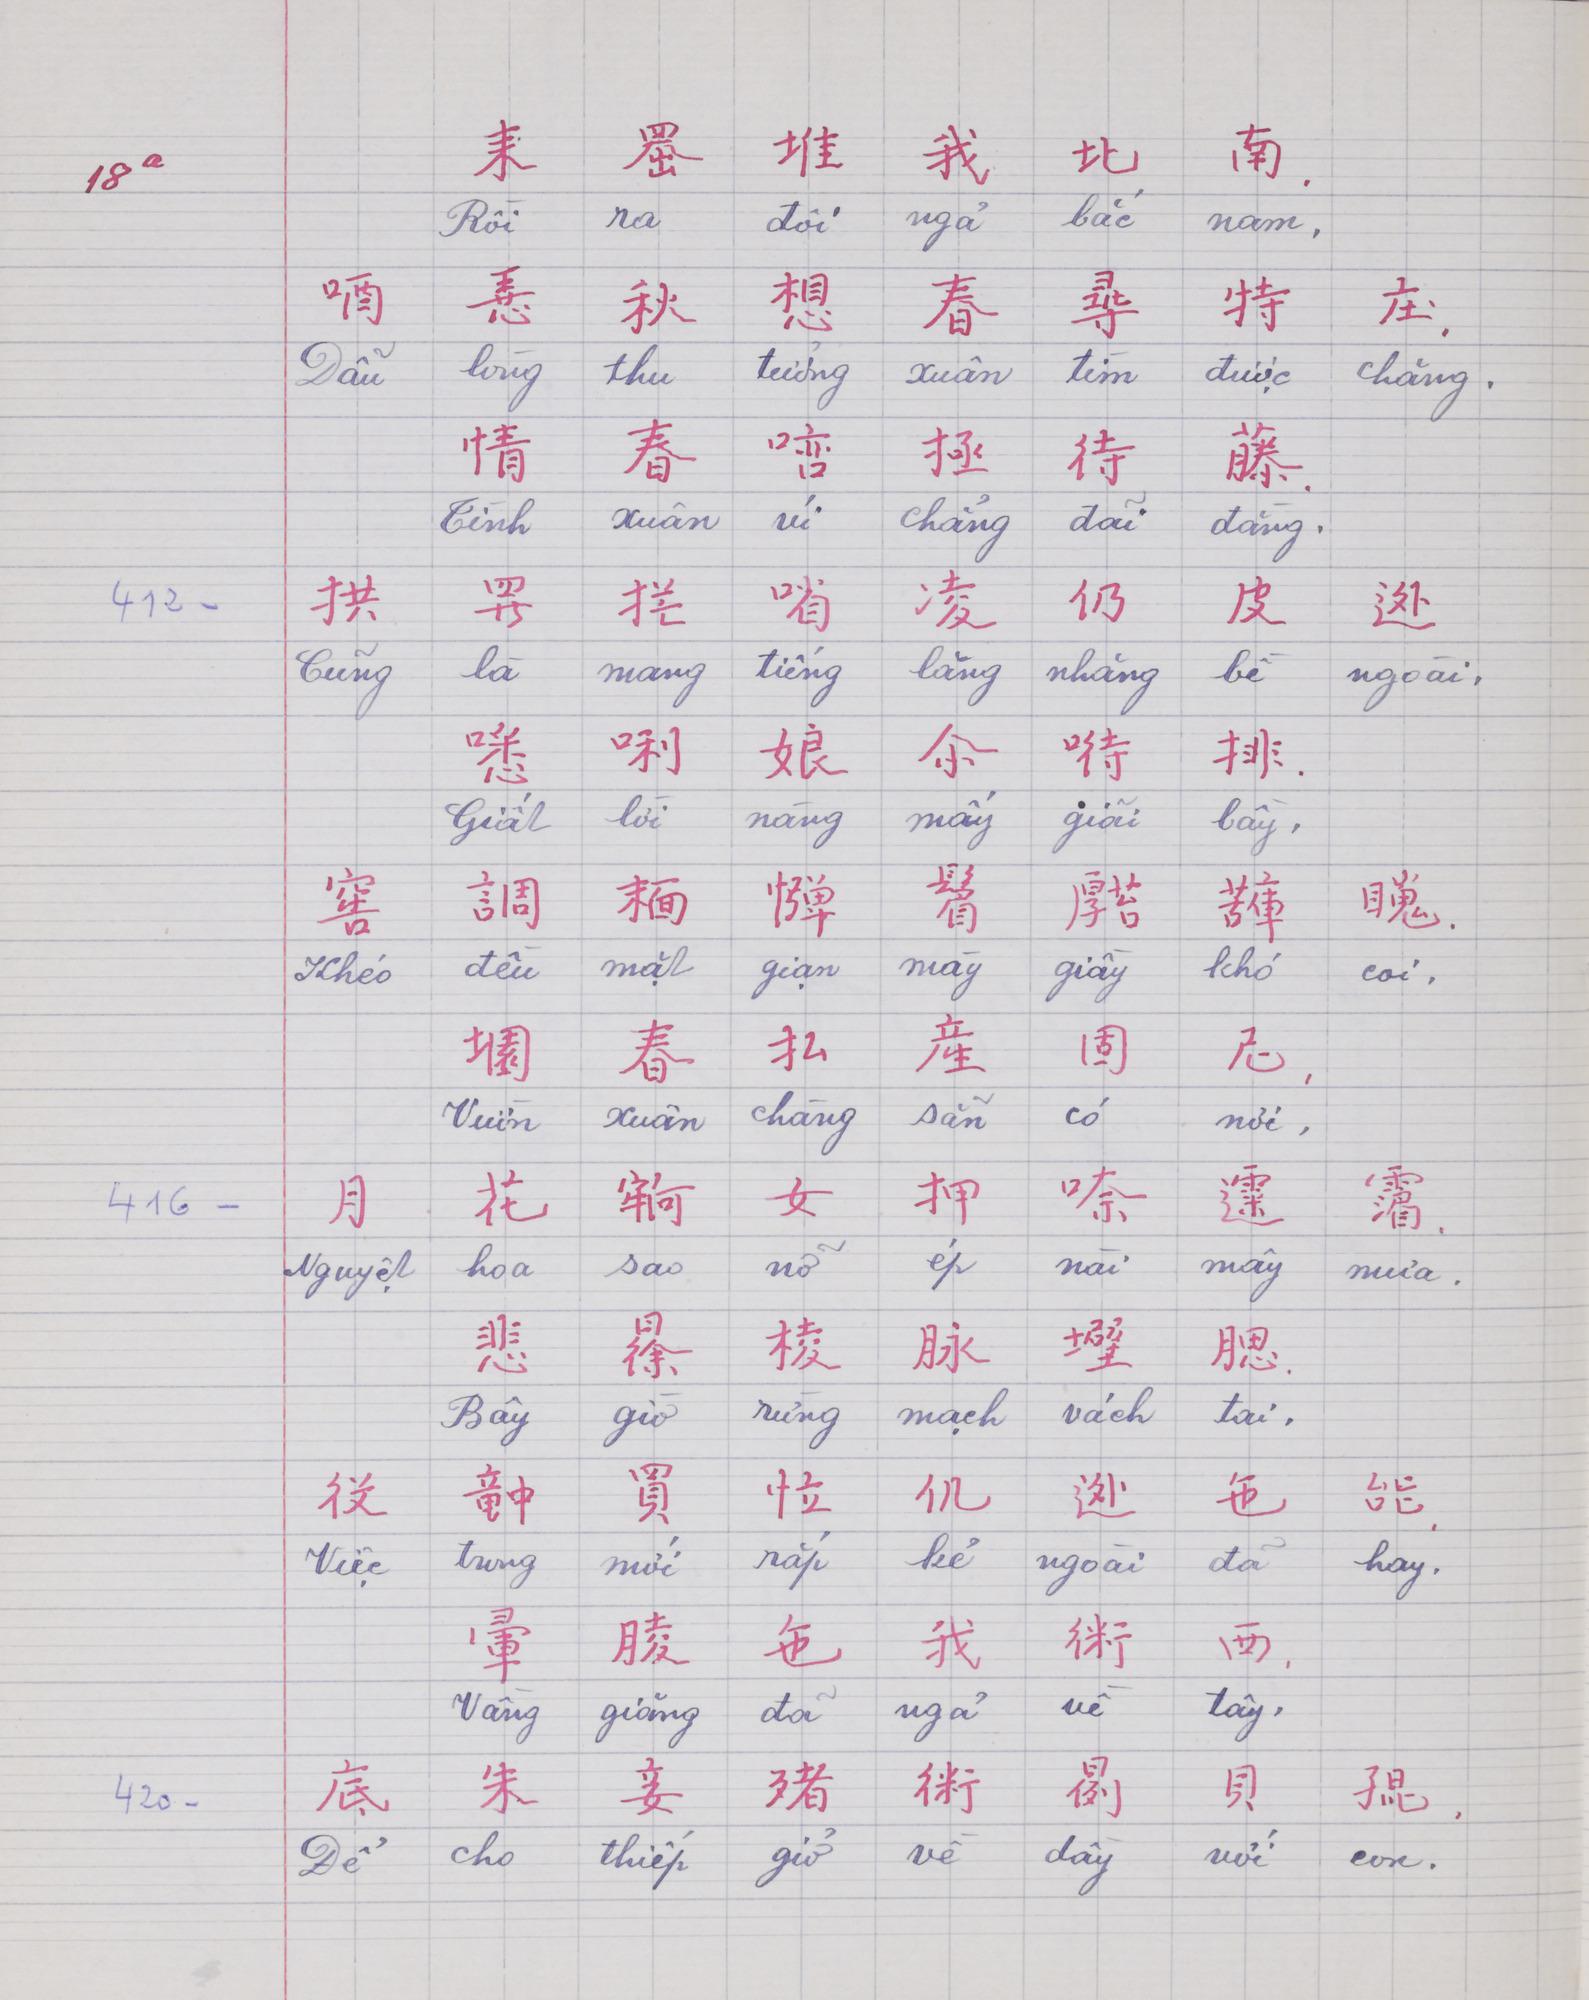 18a
耒 𫥨 堆 我 北 南.
Rồi ra đôi ngả bắc nam,
唒 𢚸 秋 想 春 尋 特 庄.
Dẫu lòng thu tưởng xuân tìm được chăng.
情 春 噾 極 待 藤.
Tình xuân ví chẳng đãi đằng.
412 -
拱 𱺵 𢬄 㗂 凌 仍 皮 𨖲
Cũng là mang tiếng lăng nhăng bề ngoài.
唎 娘 余 𠱋 排.
Giất lời nàng mấy giãi bầy,
窖 調 𩈘 憚 𣮮 苔 𧁷 𥋳.
Khéo đều mặt giạn mày giầy khó coi.
園 春 払 産 固 尼,
Vườn xuân chàng sẵn có nơi,
416 -
月 花 𡫡 女 押 㖠 𩄲 𩅹.
Nguyệt hoa sao nỡ ép nài mây mưa.
悲 𣇞 棱 脉 壁 腮.
Bây giờ rừng mạch vách tai.
役 𥪝 買 㕸 仉 外 㐌 咍.
Việc trong mới rắp kẻ ngoài đã hay.
暈 𦝄 㐌 我 術 西.
Vầng giăng đã ngả về tây.
420 -
底 朱 妾 𨁪 術 𠰺 貝 𡥵.
Để cho thiếp giở về dầy với con.